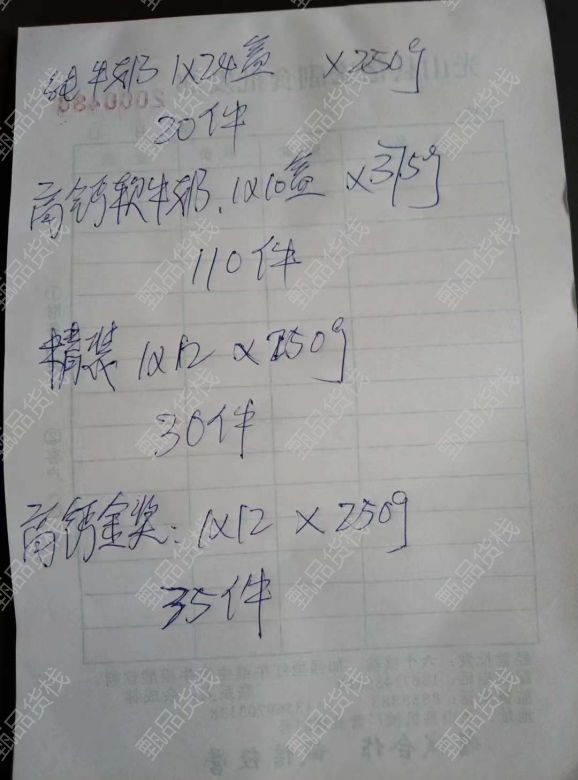 纯牛奶 1X24盒 X250g
20件
高钙软牛奶.1X10盒 X375g
110件
精装 1X12 X250g
30件
高钙金奖:1X12 X250g
35件
甄品货栈